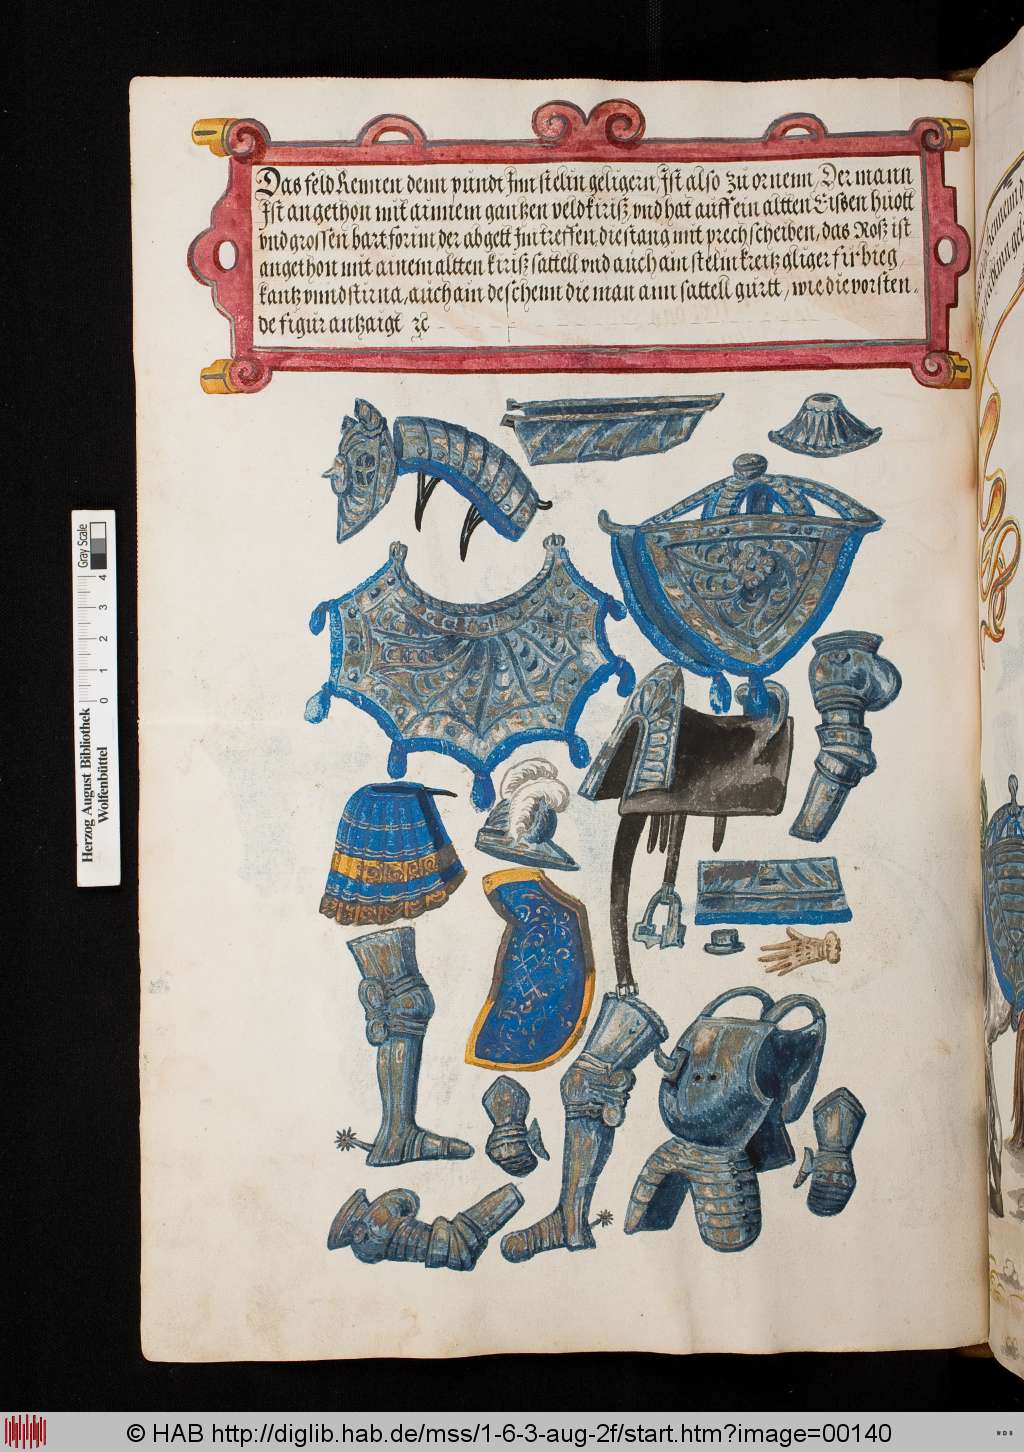 Das feld Rennen denn pundt Inn stelin geligern, Ist also zu ornenn, Der mann
Ist angethon mit ainnem gantzen veldkiriß vnd hat auff ein altten Eißen huott
vnd grossen bart forim der abgett Im treffen, die stang mit prechscheiben, das Roß ist
angethon mit ainem altten kiriß sattell vnd auch ain stelin
kantz vnnd stirna, auch ain deschenn die man ann sattell gurtt, wie die vorsten„
de figur antzaigt ꝛc
Gray Scale
0 1 2 3 4
Herzog August Bibliothek
Wolfenbüttel
© HAB http://diglib.hab.de/mss/1-6-3-aug-2f/start.htm?image=00140
WDB